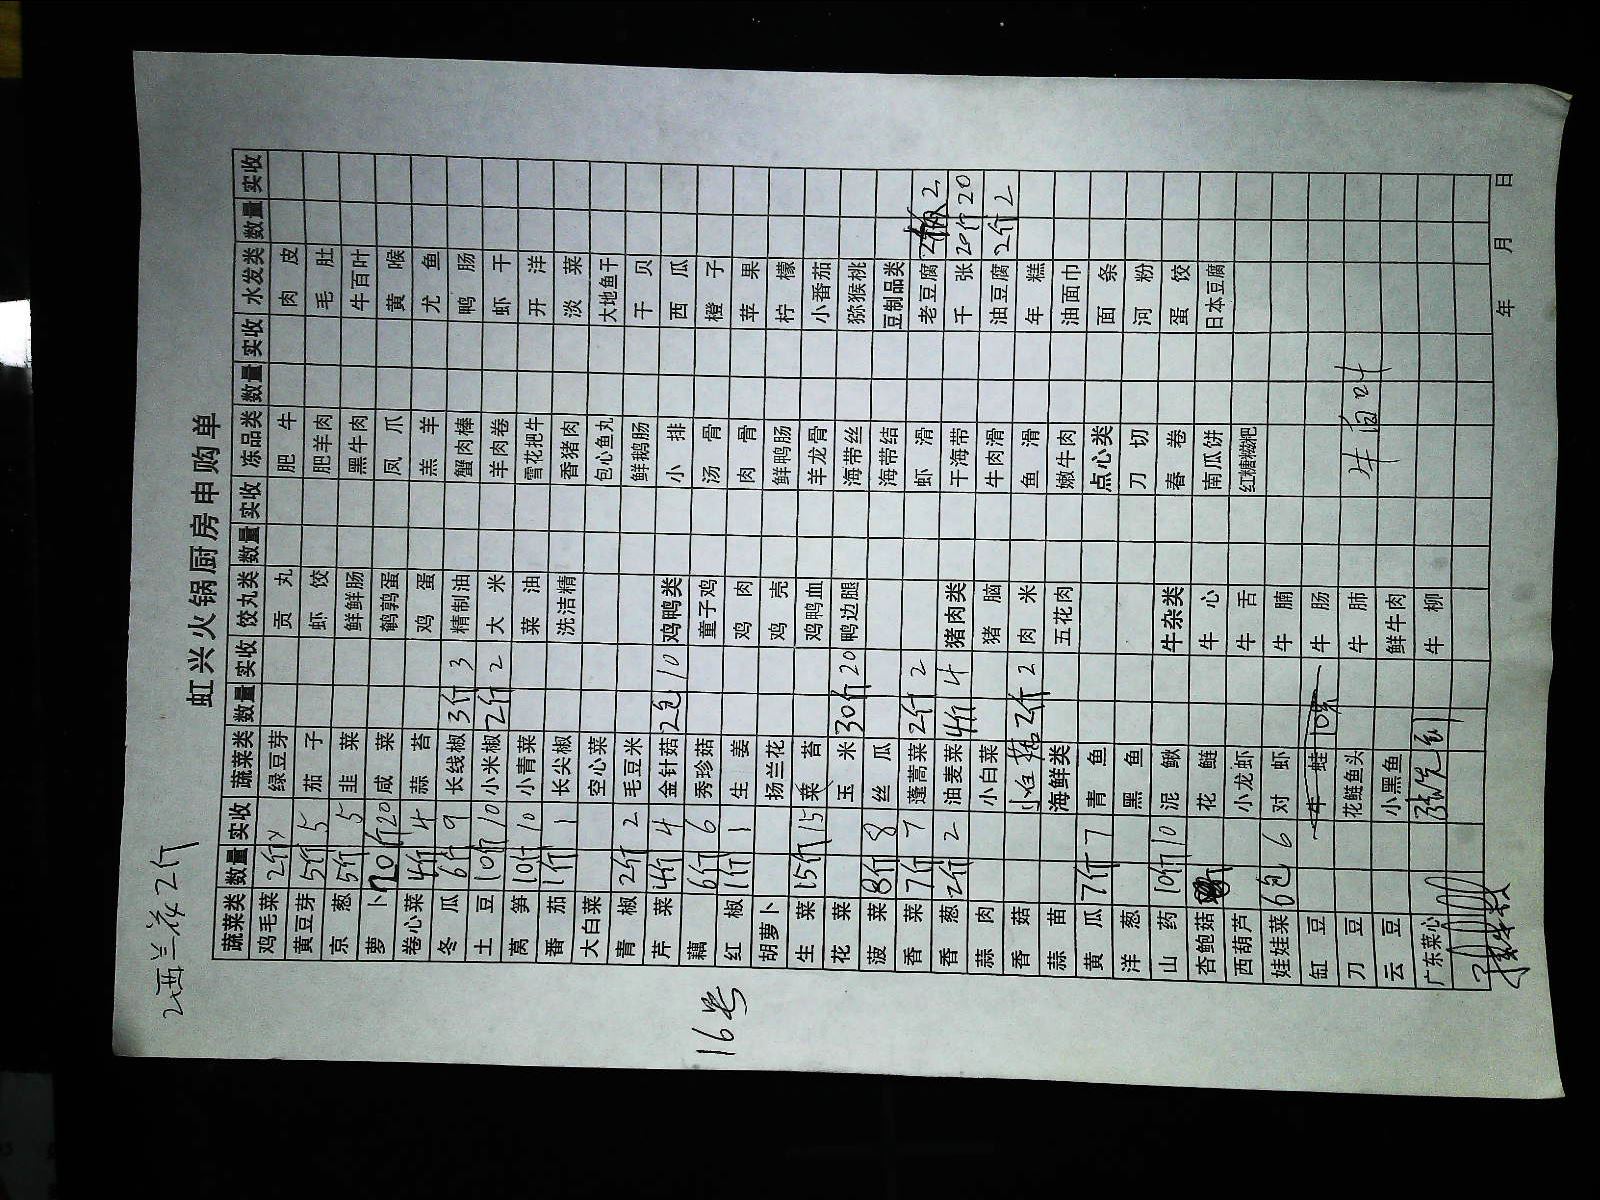 2西兰花2斤
虹兴火锅厨房申购单
蔬菜类 数量 实收 蔬菜类 数量 实收 饺丸类 数量 实收 冻品类 数量 实收 水发类 数量 实收
鸡毛菜 2斤 绿豆芽 贡丸 肥牛 肉皮
黄豆芽 5斤 5 茄子 虾饺 肥羊肉 毛肚
京葱 5斤 5 韭菜 鲜鲜肠 黑牛肉 牛百叶
萝卜 20斤 20 咸菜 鹌鹑蛋 凤爪 黄喉
卷心菜 4斤 4 蒜苔 鸡蛋 羔羊 尤鱼
冬瓜 6斤 9 长线椒 3斤 3 精制油 蟹肉棒 鸭肠
土豆 10斤 10 小米椒 2斤 2 大米 羊肉卷 虾干
莴笋 10斤 10 小青菜 菜油 雪花把牛 开洋
番茄 1斤 1 长尖椒 洗洁精 香猪肉 淡菜
大白菜 空心菜 包心鱼丸 大地鱼干
青椒 2斤 2 毛豆米 鲜鹅肠 干贝
芹菜 4斤 4 金针菇 2包 10 鸡鸭类 小排 西瓜
藕 6斤 6 秀珍菇 童子鸡 汤骨 橙子
红椒 1斤 1 生姜 鸡肉 肉骨 苹果
胡萝卜 扬兰花 鸡壳 鲜鸭肠 柠檬
生菜 15斤 15 菜苔 鸡鸭血 羊龙骨 小番茄
花菜 玉米 30斤 20 鸭边腿 海带丝 猕猴桃
菠菜 8斤 8 丝瓜 海带结 豆制品类
香菜 7斤 7 蓬蒿菜 2斤 2 虾滑 老豆腐 2
香葱 2斤 2 油麦菜 4斤 4 猪肉类 干海带 千张 20斤 20
蒜肉 小白菜 猪脑 牛肉滑 油豆腐 2斤 2
香菇 2斤 2 肉米 鱼滑 年糕
蒜苗 海鲜类 五花肉 嫩牛肉 油面巾
黄瓜 7斤 7 青鱼 点心类 面条
洋葱 黑鱼 刀切 河粉
山药 10斤 10 泥鳅 牛杂类 春卷 蛋饺
杏鲍菇 花鲢 牛心 南瓜饼 日本豆腐
西葫芦 小龙虾 牛舌 红糖糍粑
娃娃菜 6包 6 对虾 牛腩
缸豆 牛蛙 牛肠
刀豆 花鲢鱼头 牛肺 牛百叶
云豆 小黑鱼 鲜牛肉
广东菜心 牛柳
16号
年 月 日